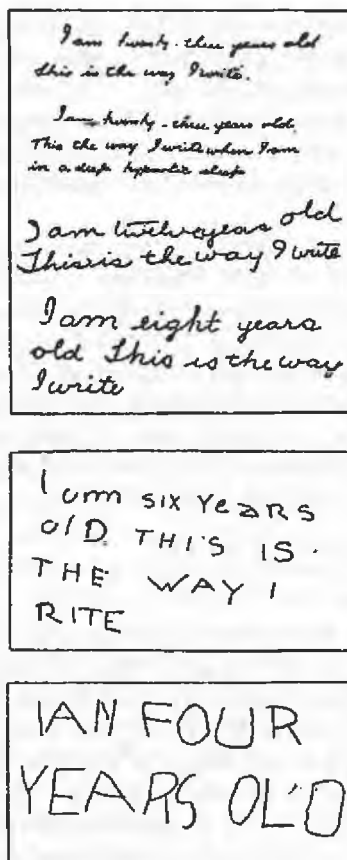 I am twenty-three years old
this is the way I write.
I am twenty-three years old.
This the way I write when I am
in a deep hypnotic sleep
I am twelve years old
This is the way I write
I am eight years
old This is the way
I write
I am six Years
olD THIS IS.
THE WAY I
RITE
IAN FOUR
YEARS OLD